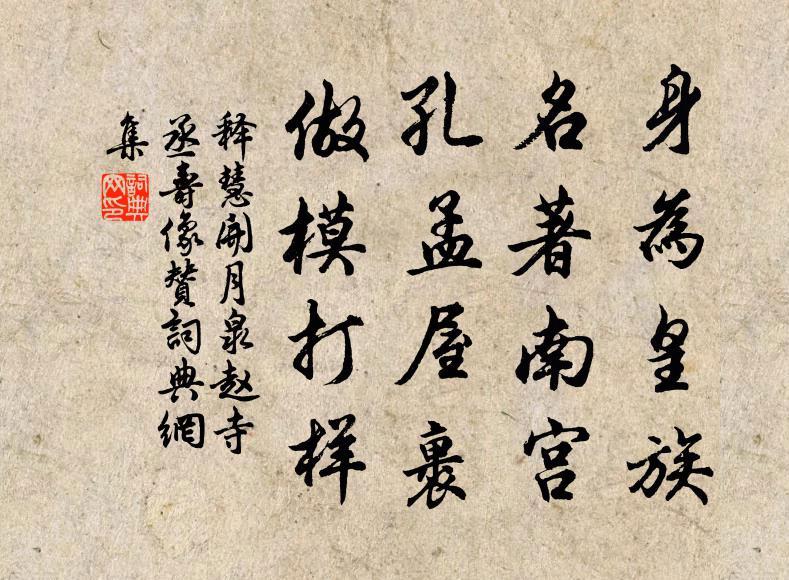 身為皇族
名著南宫
孔孟屋裹
做模打样
释慧開月泉赵寺
丞壽像贊詞典網
集
詞典
网印